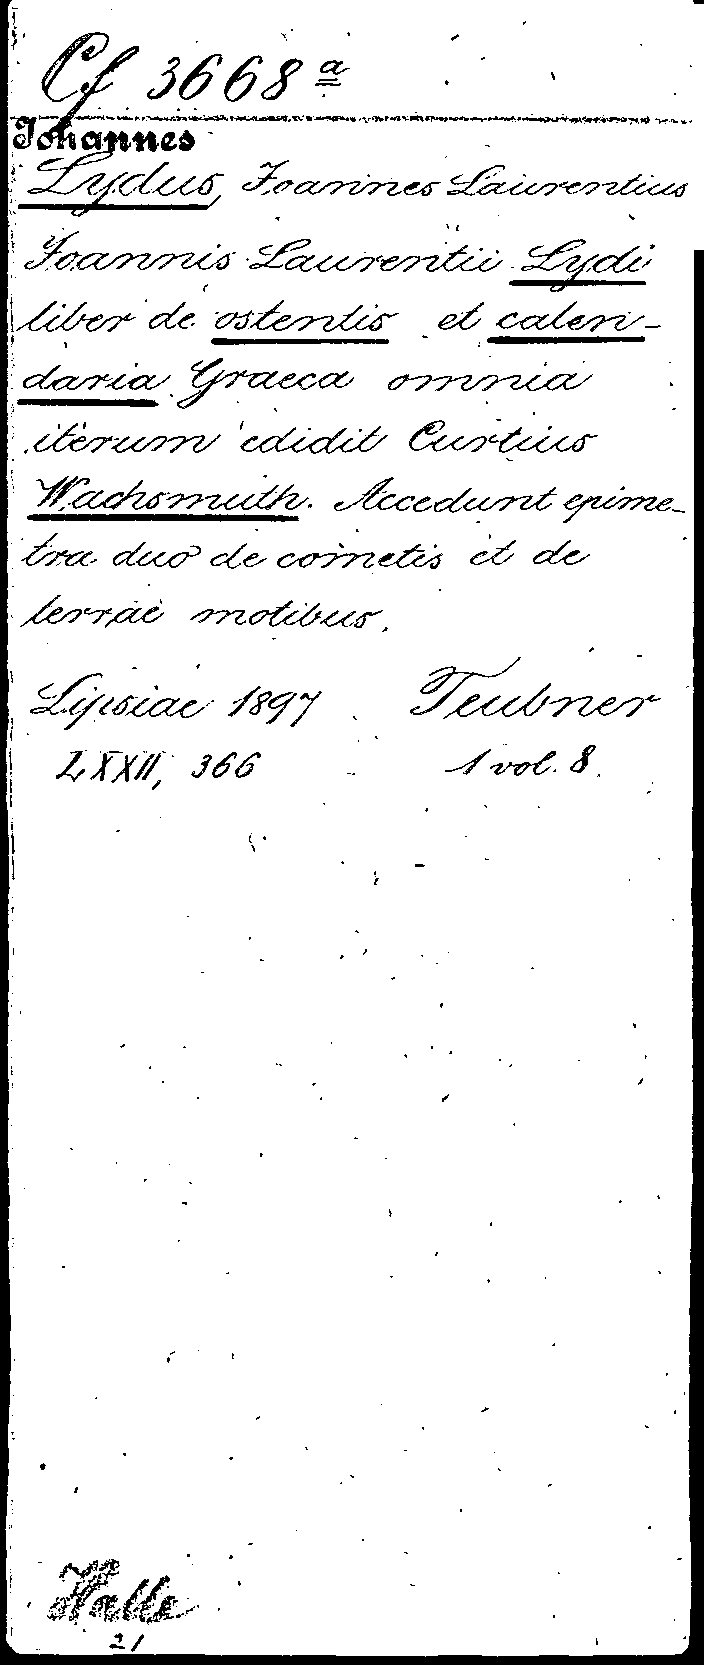 Cf 3668 a
Johannes
Lydus, Joannes Laurentius
Joannis Laurentii Lydi
liber de ostentis et calen-
daria Graeca omnia
iterum edidit Curtius
Wachsmuth. Accedunt epime-
tra duo de cometis et de
terrae motibus.
Lipsiae 1897 Teubner
LXXII, 366 1 vol. 8.
Halle
21